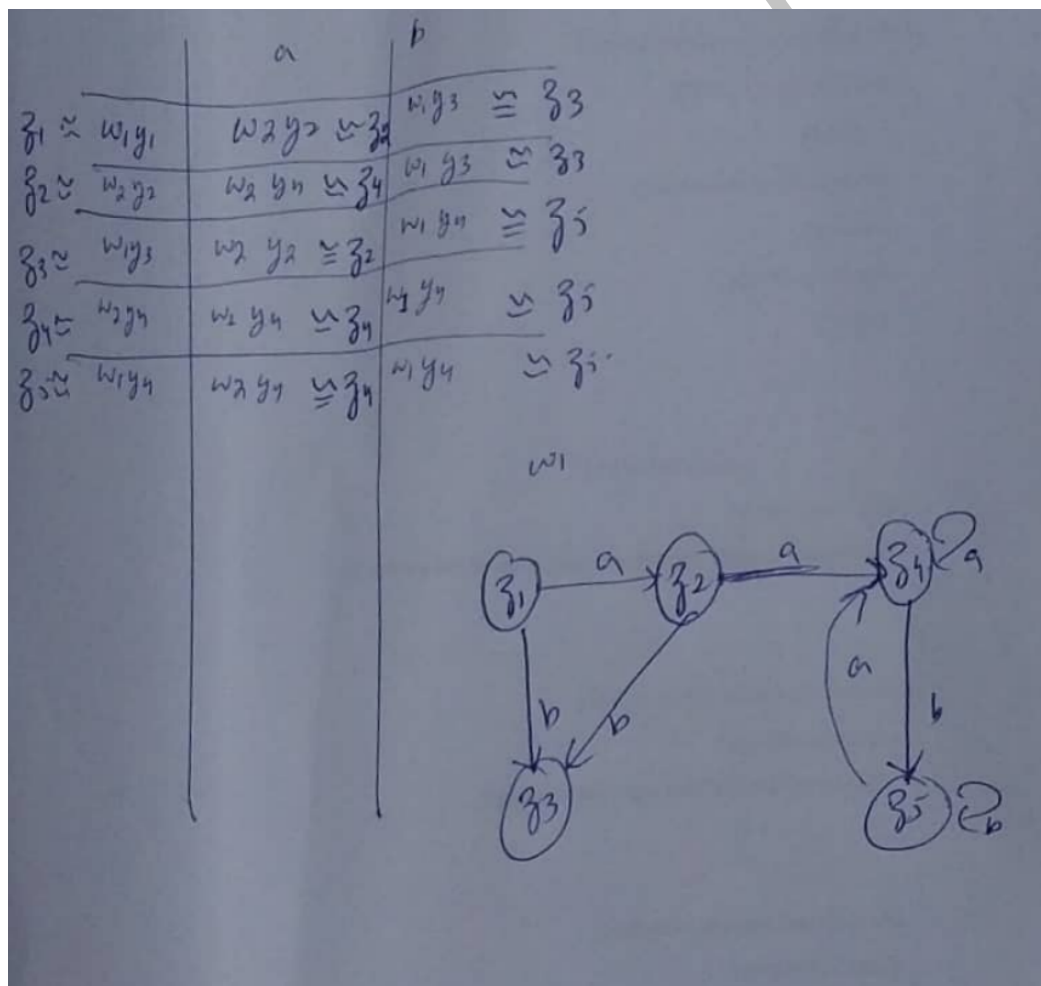 a b
z1 ≈ w1y1 w2y2 ≈ z2 w1y3 ≅ z3
z2 ≈ w2y2 w2 y4 ≈ z4 w1 y3 ≈ z3
z3 ≈ w1y3 w2 y2 ≅ z2 w1 y4 ≅ z5
z4 ≈ w2y4 y4 ≈ z4 y4 ≈ z5
z5 ≈ w1y4 w2 y4 ≅ z4 w1y4 ≈ z5
w1
z1 a z2 a z4 a
b b a b
z3 z5 b